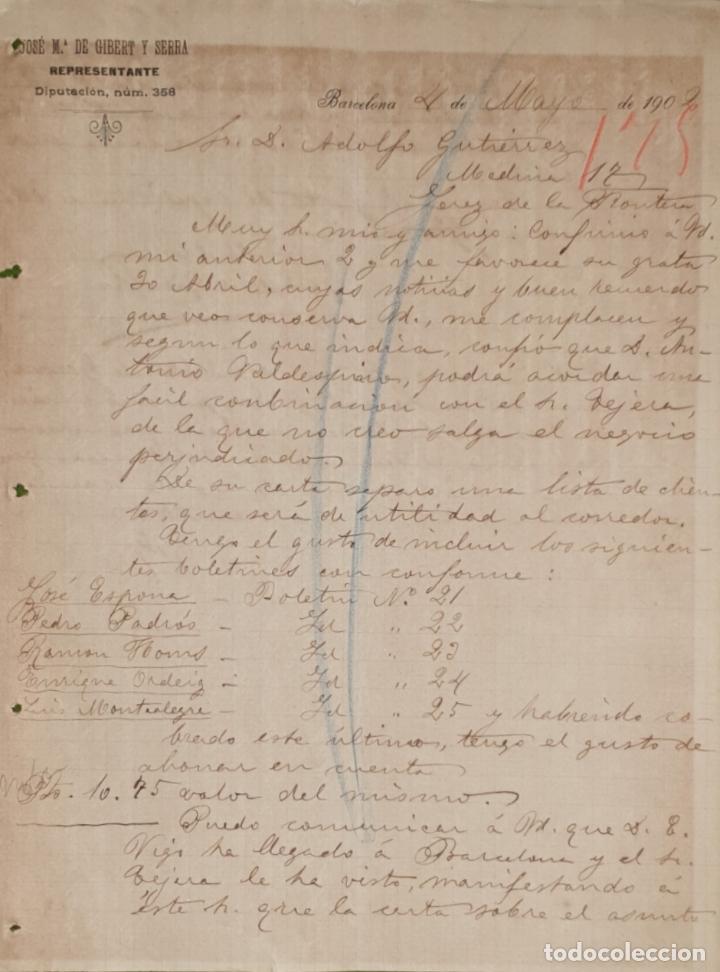 JOSÉ M.ª DE GIBERT Y SERRA
REPRESENTANTE
Diputación, núm. 358
Barcelona 4 de Mayo de 1902
1'75
Sr. D. Adolfo Gutiérrez
Medina 17
Jerez de la Frontera
Muy Sr. mio y amigo: Confirmo á Vd.
mi anterior 2 y me favorece su grata
30 Abril, cuyas noticias y buen recuerdo
que veo conserva Vd., me complacen y
segun lo que indica, confió que D. An-
tonio Valdespino, podrá acordar una
fácil combinación con el Sr. Tejera,
de la que no creo salga el negocio
perjudicado.
De su carta separo una lista de clien-
tes, que será de utilidad al corredor.
Tengo el gusto de incluir los siguien-
tes boletines con conforme:
José Espona - Boletin N.º 21
Pedro Padrós - Id " 22
Ramon Homs - Id " 23
Enrique Ordeig - Id " 24
Luis Montealegre - Id " 25 y habiendo co-
brado este último, tengo el gusto de
abonar en cuenta
Pts. 10.75 valor del mismo.
Puedo comunicar á Vd. que D. E.
Vigo ha llegado á Barcelona y el Sr.
Tejera le ha visto, manifestando á
éste Sr. que la carta sobre el asunto
todocoleccion.net